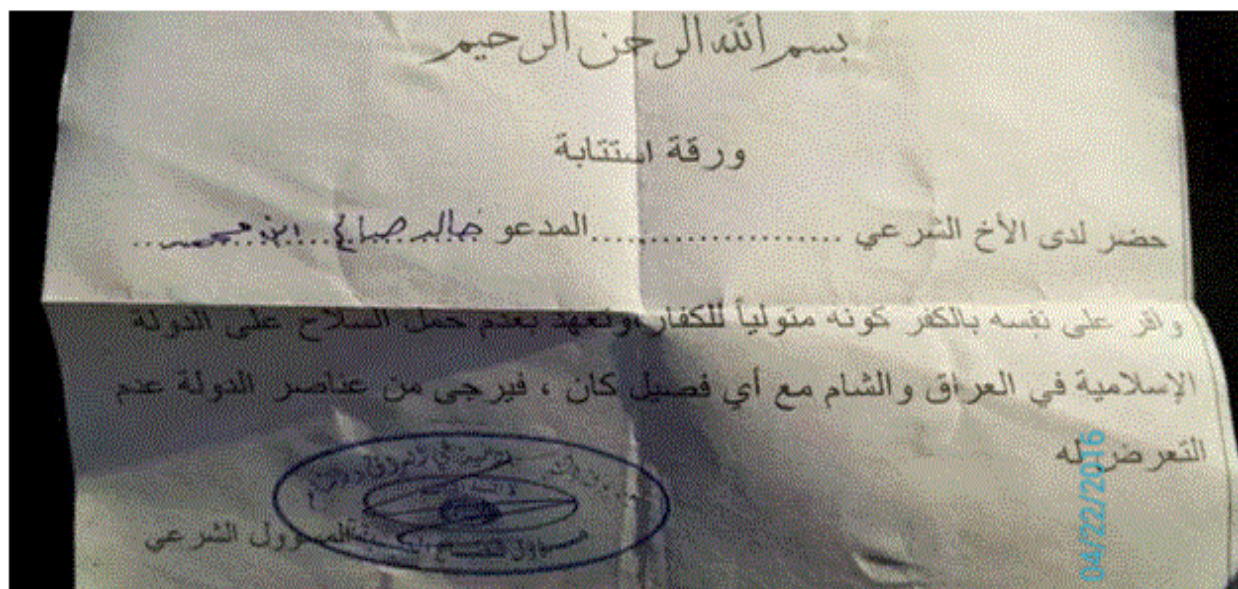 بسم الله الرحمن الرحيم
ورقة استتابة
حضر لدى الأخ الشرعي ......................المدعو خالد صباغ ابن محمد
واقر على نفسه بالكفر كونه متولياً للكفار ،وتعهد بعدم حمل السلاح على الدولة
الإسلامية في العراق والشام مع أي فصيل كان ، فيرجى من عناصر الدولة عدم
التعرض له
المسؤول الشرعي
04/22/2016